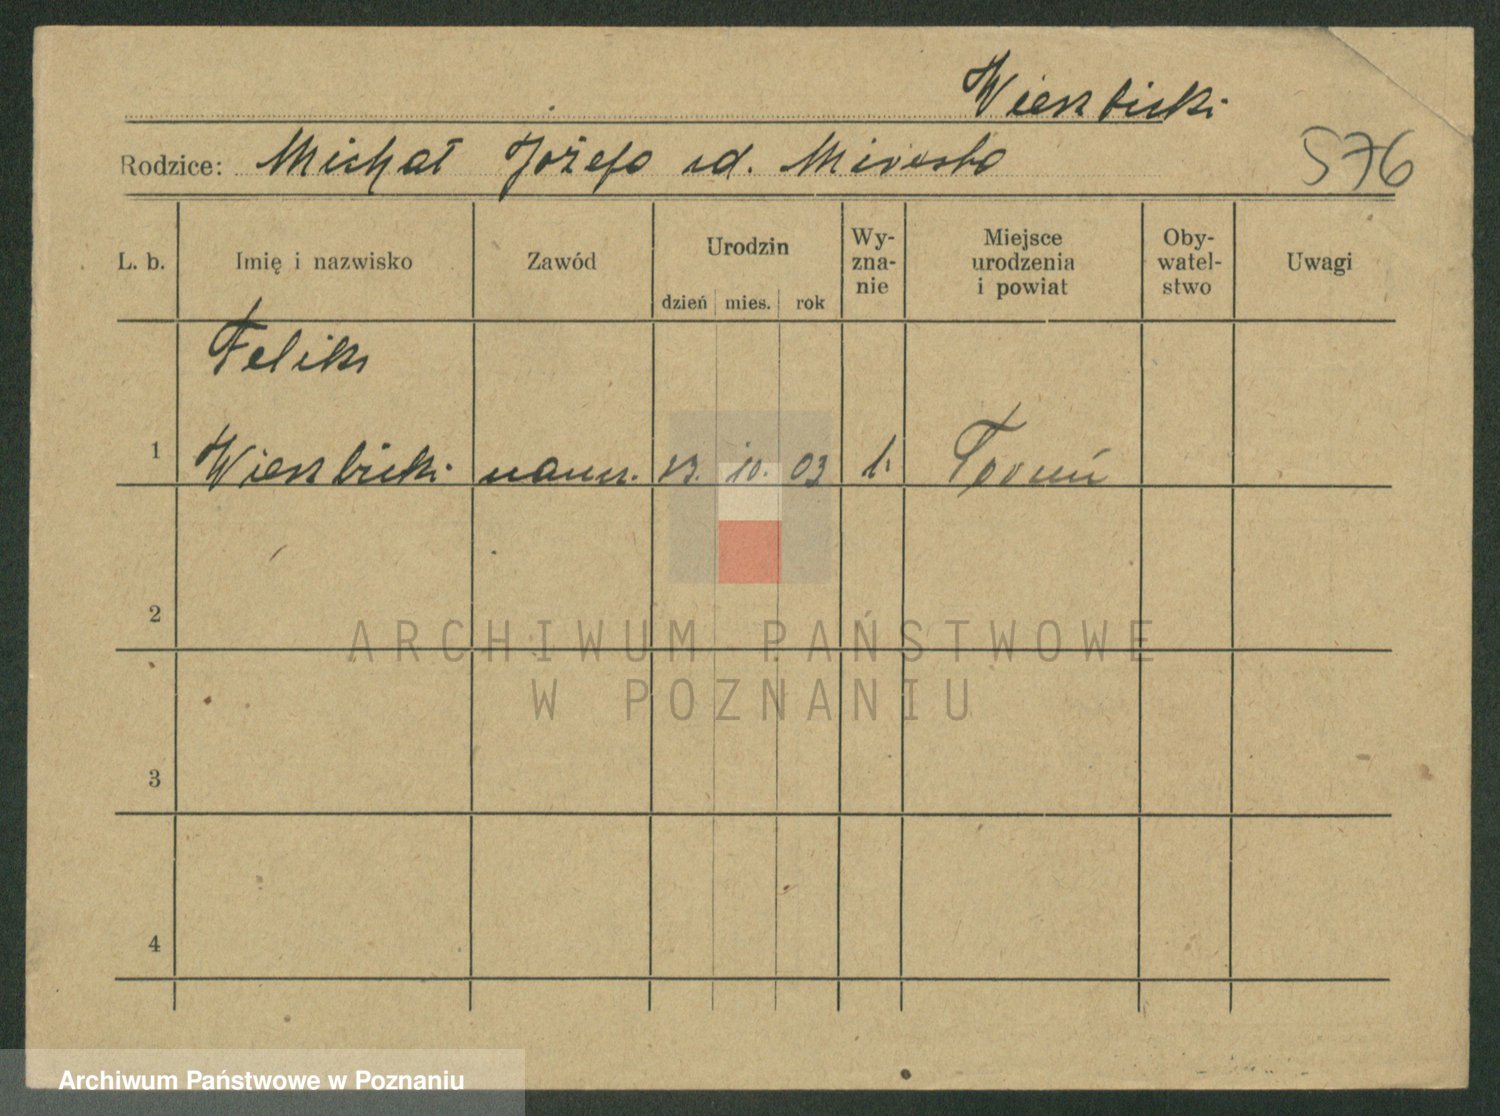 Wierzbicki
Rodzice: Michał Józefa zd. 576
L. b. Imię i nazwisko Zawód Urodzin dzień mies. rok Wy-zna-nie Miejsce urodzenia i powiat Oby-watel-stwo Uwagi
Feliks
1 Wierzbicki naucz. 13. 10. 03 Toruń
2
ARCHIWUM PAŃSTWOWE
W POZNANIU
3
4
Archiwum Państwowe w Poznaniu